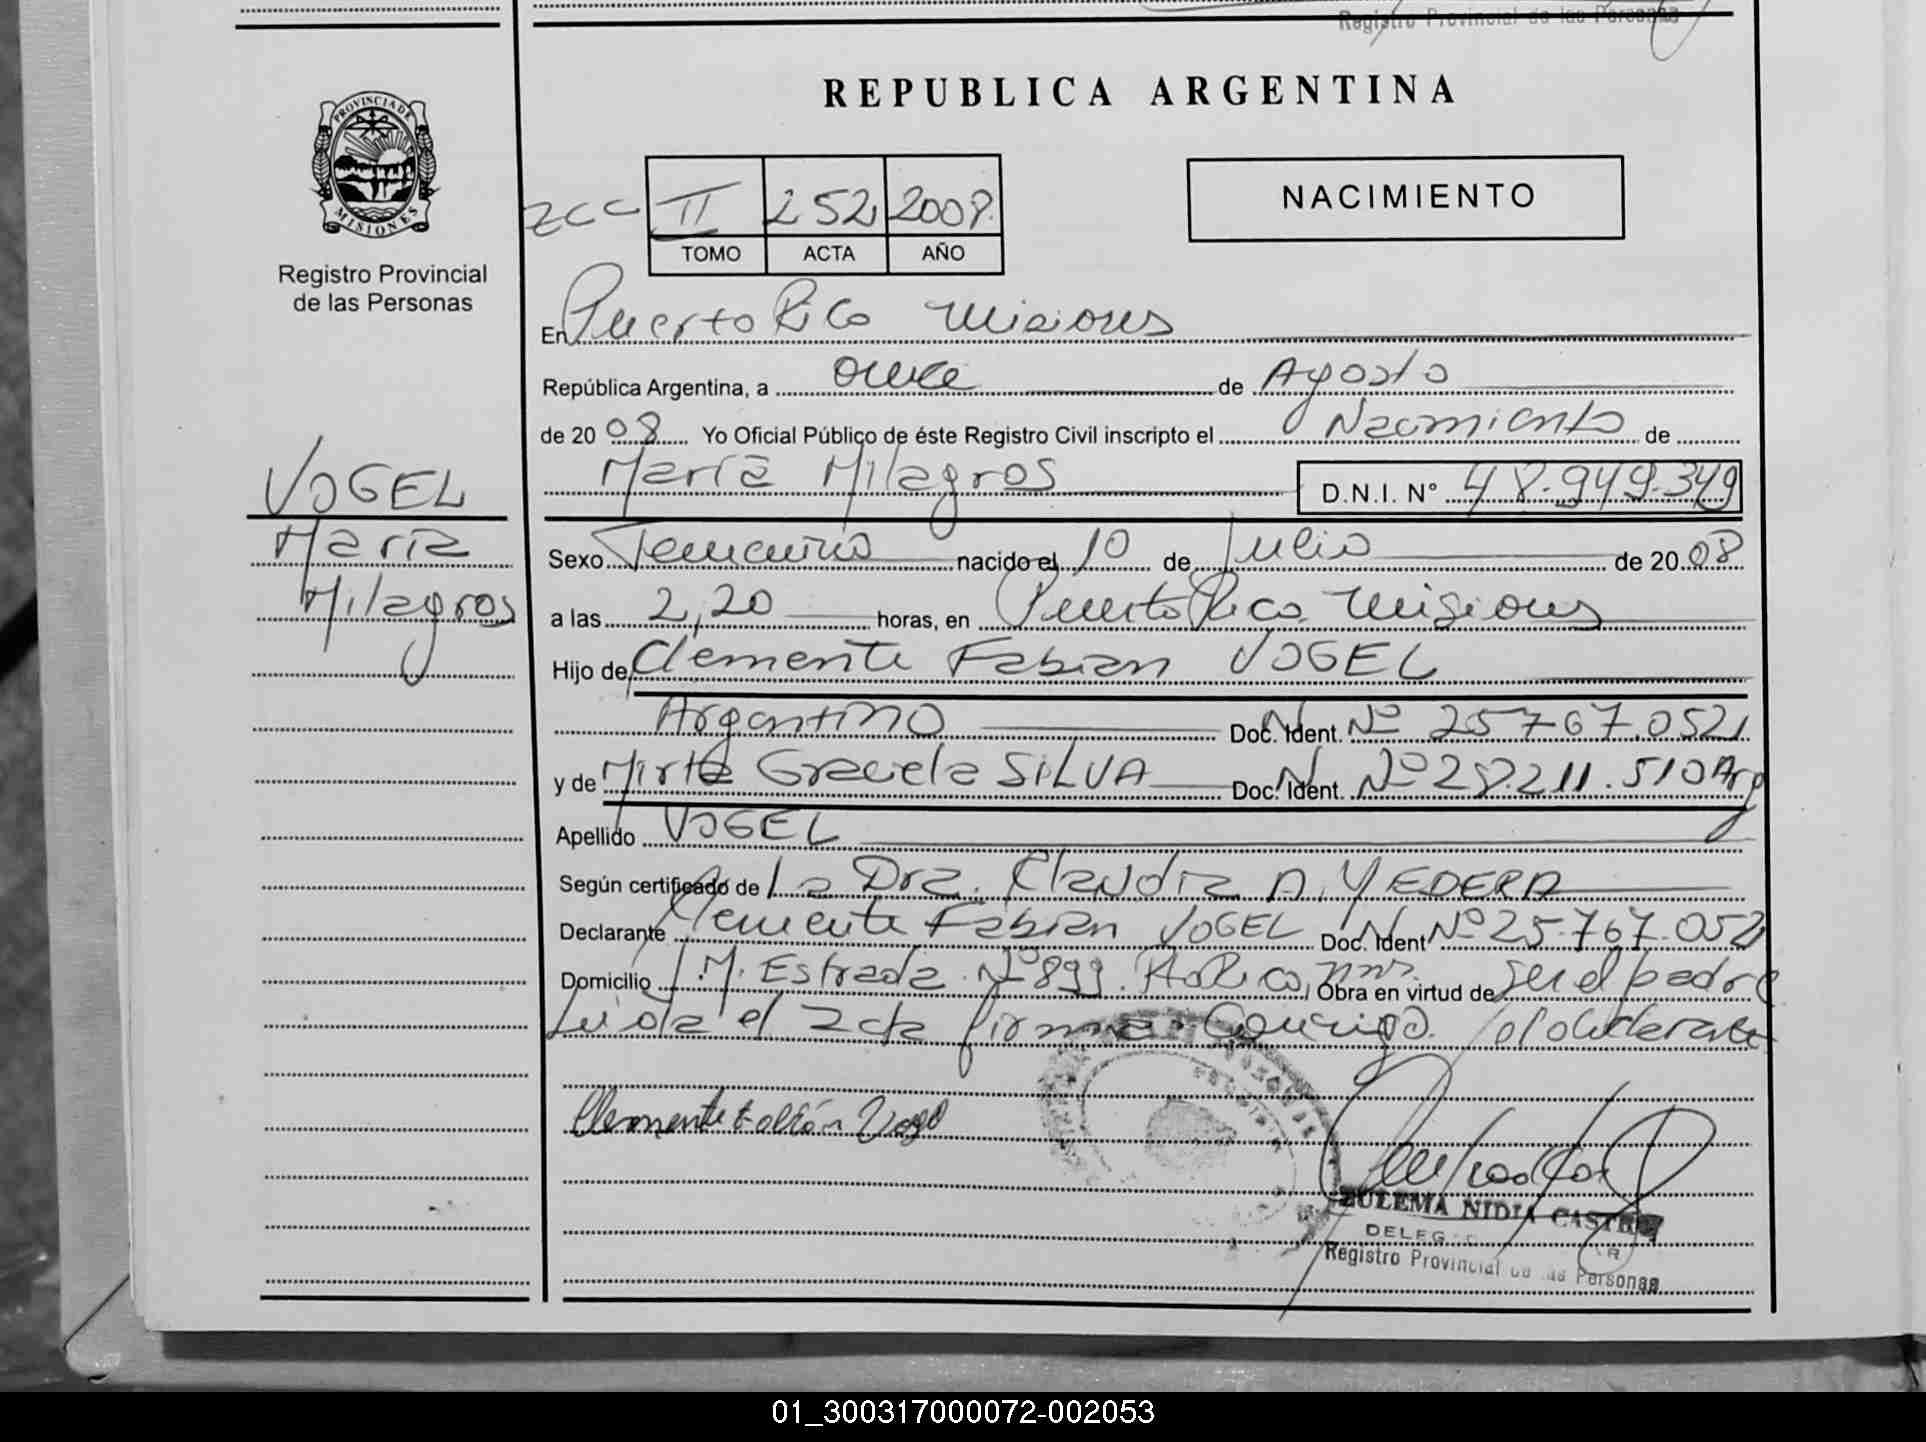 Registro Provincial de las Personas
PROVINCIA DE
MISIONES
Registro Provincial
de las Personas
REPUBLICA ARGENTINA
NACIMIENTO
II 252 2008
TOMO ACTA AÑO
En Puerto Rico Misiones
República Argentina, a once de Agosto
de 20 08 Yo Oficial Público de éste Registro Civil inscripto el Nacimiento de
María Milagros D.N.I. Nº 48.949.349
VOGEL
María
Milagros
Sexo Femenino nacido el 10 de Julio de 20 08
a las 2,20 horas, en Puerto Rico Misiones
Hijo de Clemente Fabian VOGEL
Argentino Doc. Ident. Nº 25767.052
y de Mirta Graciela SILVA Doc. Ident. Nº 28.211.510 Arg
Apellido VOGEL
Según certificado de La Dra. Claudia A. YEDERA
Declarante Clemente Fabian VOGEL Doc. Ident Nº 25.767.052
Domicilio J.M. Estrada Nº 899. Pto Rico, Mns. Obra en virtud de ser el padre
Leida el acta firma Conmigo el declarante
Clemente Fabián Vogel
ZULEMA NIDIA CASTRO
Registro Provincial de las Personas
01_300317000072-002053